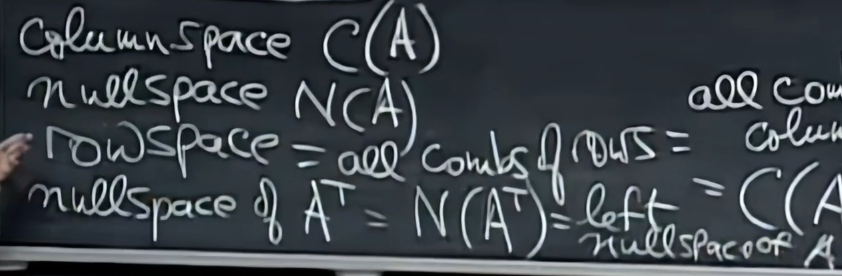 Column space C(A)
nullspace N(A)
rowspace = all combs of rows = all com
colum
= C(A
nullspace of Aᵀ = N(Aᵀ) = left
nullspace of A